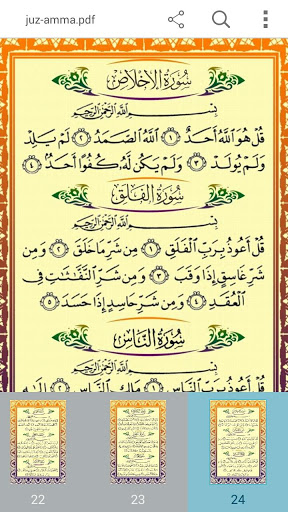 juz-amma.pdf
سُورَةُ الإِخْلَاصِ
بِسْمِ اللَّهِ الرَّحْمَٰنِ الرَّحِيمِ
قُلْ هُوَ اللَّهُ أَحَدٌ ١ اللَّهُ الصَّمَدُ ٢ لَمْ يَلِدْ
وَلَمْ يُولَدْ ٣ وَلَمْ يَكُن لَّهُ كُفُوًا أَحَدٌ ٤
سُورَةُ الفَلَقِ
بِسْمِ اللَّهِ الرَّحْمَٰنِ الرَّحِيمِ
قُلْ أَعُوذُ بِرَبِّ الْفَلَقِ ١ مِن شَرِّ مَا خَلَقَ ٢ وَمِن
شَرِّ غَاسِقٍ إِذَا وَقَبَ ٣ وَمِن شَرِّ النَّفَّاثَاتِ فِي
الْعُقَدِ ٤ وَمِن شَرِّ حَاسِدٍ إِذَا حَسَدَ ٥
سُورَةُ النَّاسِ
بِسْمِ اللَّهِ الرَّحْمَٰنِ الرَّحِيمِ
قُلْ أَعُوذُ بِرَبِّ النَّاسِ ١ مَلِكِ النَّاسِ ٢ إِلَٰهِ
22
23
24